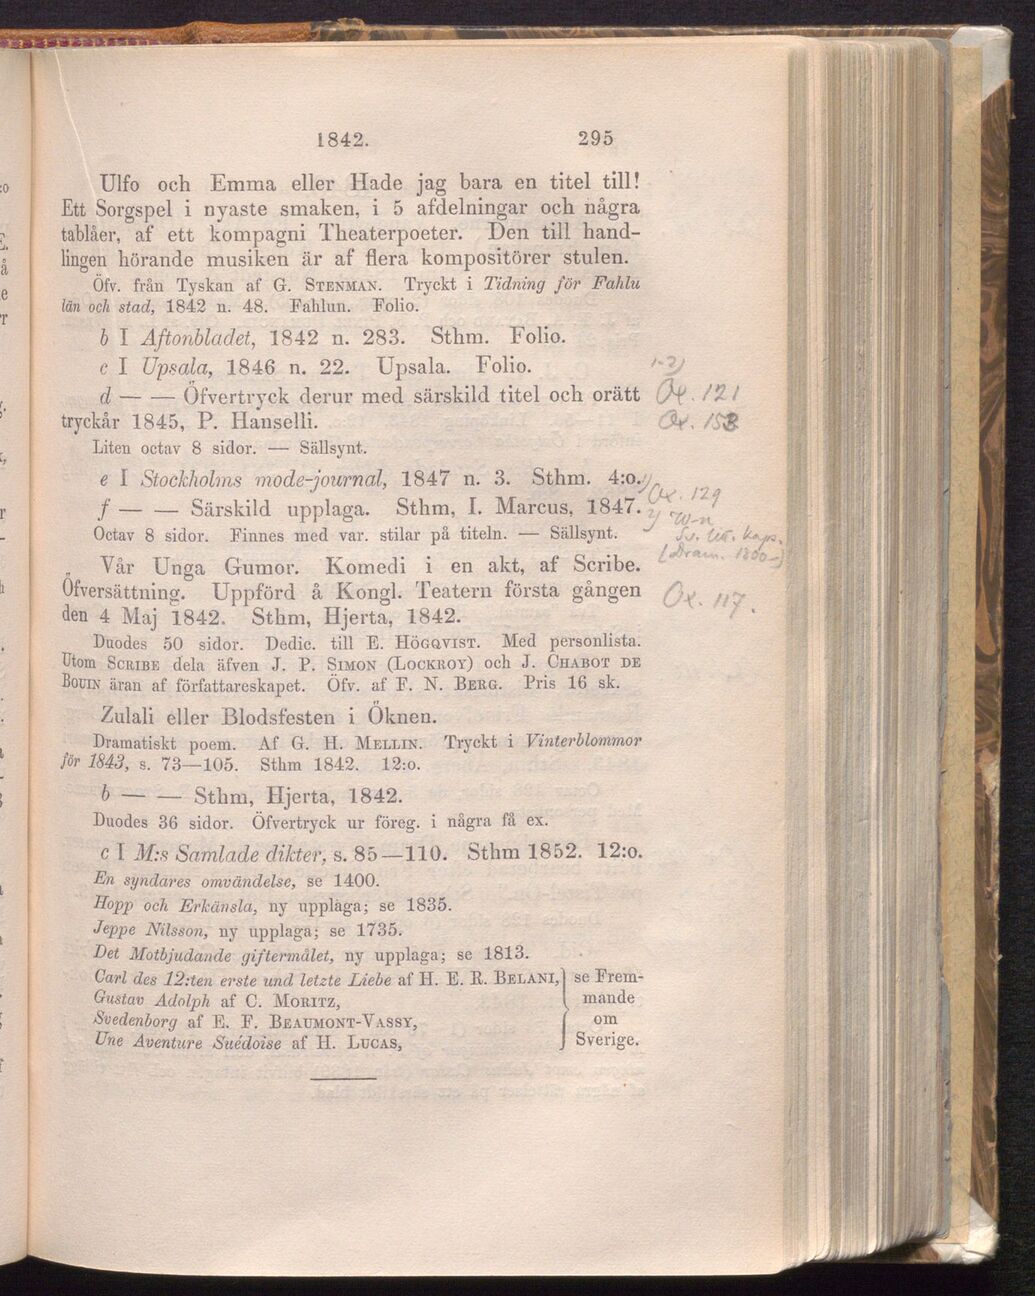 1842. 295
Ulfo och Emma eller Hade jag bara en titel till!
Ett Sorgspel i nyaste smaken, i 5 afdelningar och några
tablåer, af ett kompagni Theaterpoeter. Den till hand-
lingen hörande musiken är af flera kompositörer stulen.
Öfv. från Tyskan af G. STENMAN. Tryckt i Tidning för Fahlu
län och stad, 1842 n. 48. Fahlun. Folio.
b I Aftonbladet, 1842 n. 283. Sthm. Folio.
c I Upsala, 1846 n. 22. Upsala. Folio. 1-2)
d — — Öfvertryck derur med särskild titel och orätt Ox. 121
tryckår 1845, P. Hanselli. Ox. 153
Liten octav 8 sidor. — Sällsynt.
e I Stockholms mode-journal, 1847 n. 3. Sthm. 4:o. 1) Ox. 129
f — — Särskild upplaga. Sthm, I. Marcus, 1847. 2) W-n
Octav 8 sidor. Finnes med var. stilar på titeln. — Sällsynt. Sv. litt. kaps.
(Dram. 1800-)
Vår Unga Gumor. Komedi i en akt, af Scribe.
Öfversättning. Uppförd å Kongl. Teatern första gången Ox. 117.
den 4 Maj 1842. Sthm, Hjerta, 1842.
Duodes 50 sidor. Dedic. till E. HÖGQVIST. Med personlista.
Utom SCRIBE dela äfven J. P. SIMON (LOCKROY) och J. CHABOT DE
BOUIN äran af författareskapet. Öfv. af F. N. BERG. Pris 16 sk.
Zulali eller Blodsfesten i Öknen.
Dramatiskt poem. Af G. H. MELLIN. Tryckt i Vinterblommor
för 1843, s. 73—105. Sthm 1842. 12:o.
b — — Sthm, Hjerta, 1842.
Duodes 36 sidor. Öfvertryck ur föreg. i några få ex.
c I M:s Samlade dikter, s. 85—110. Sthm 1852. 12:o.
En syndares omvändelse, se 1400.
Hopp och Erkänsla, ny upplaga; se 1835.
Jeppe Nilsson, ny upplaga; se 1735.
Det Motbjudande giftermålet, ny upplaga; se 1813.
Carl des 12:ten erste und letzte Liebe af H. E. R. BELANI, se Frem-
Gustav Adolph af C. MORITZ, mande
Svedenborg af E. F. BEAUMONT-VASSY, om
Une Aventure Suédoise af H. LUCAS, Sverige.